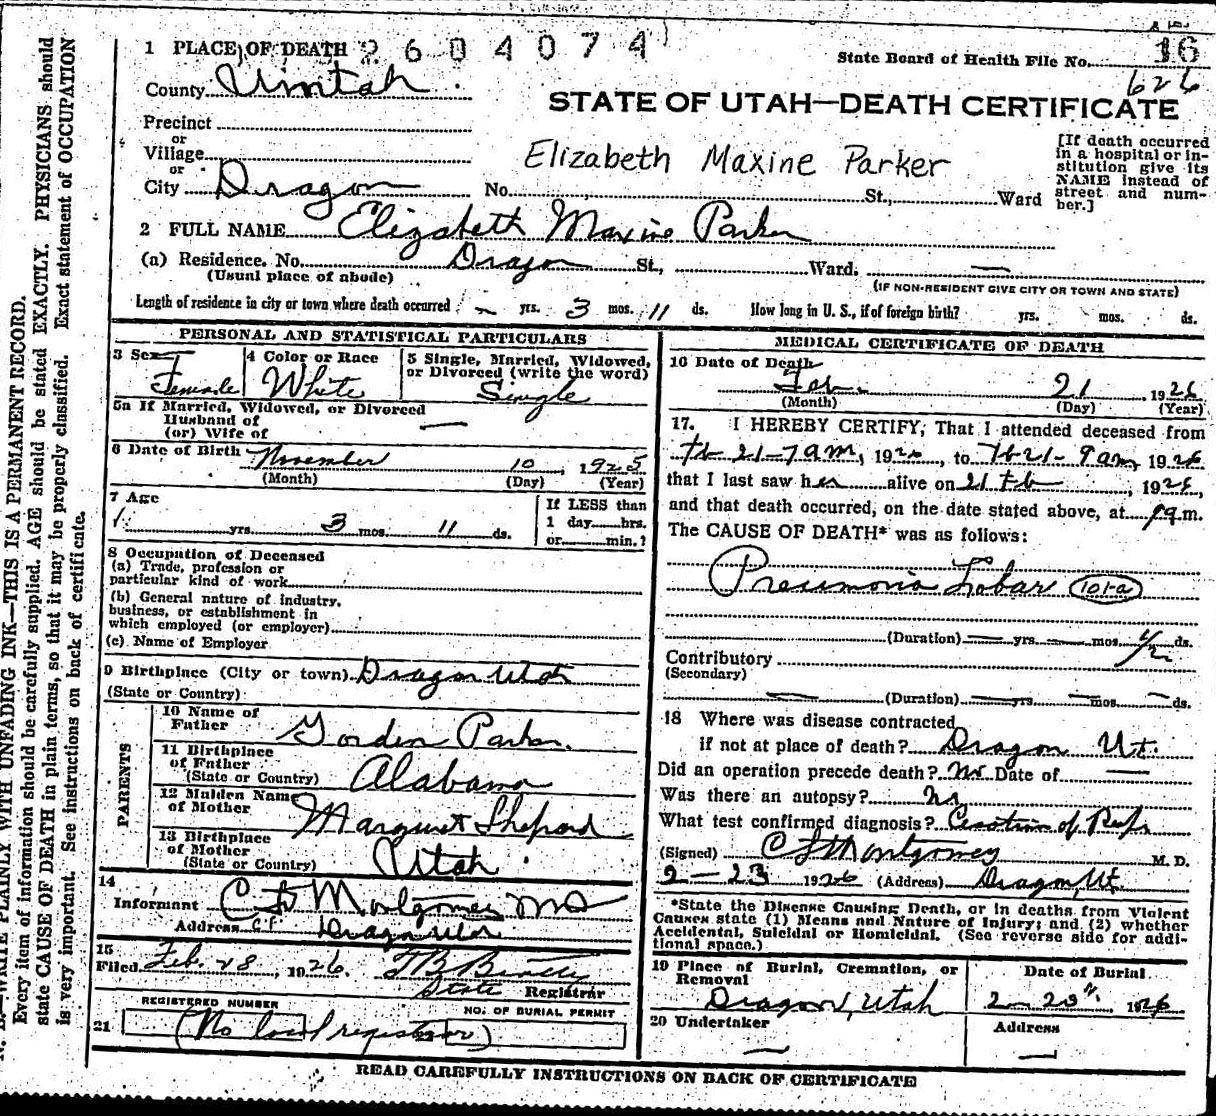 1 PLACE OF DEATH 2604074
State Board of Health File No. 16
626
County Uintah
STATE OF UTAH—DEATH CERTIFICATE
Precinct
or
Village
or
City Dragon No. St., Ward
Elizabeth Maxine Parker
[If death occurred in a hospital or institution give its NAME instead of street and number.]
2 FULL NAME Elizabeth Maxine Parker
(a) Residence. No. Dragon St., Ward. —
(Usual place of abode) (IF NON-RESIDENT GIVE CITY OR TOWN AND STATE)
Length of residence in city or town where death occurred - yrs. 3 mos. 11 ds. How long in U. S., if of foreign birth? yrs. mos. ds.
PERSONAL AND STATISTICAL PARTICULARS
3 Sex Female
4 Color or Race White
5 Single, Married, Widowed, or Divorced (write the word) Single
5a If Married, Widowed, or Divorced
Husband of
(or) Wife of —
6 Date of Birth November 10, 1925
(Month) (Day) (Year)
7 Age
yrs. 3 mos. 11 ds.
If LESS than
1 day hrs.
or min.?
8 Occupation of Deceased
(a) Trade, profession or
particular kind of work
(b) General nature of industry,
business, or establishment in
which employed (or employer)
(c) Name of Employer
9 Birthplace (City or town) Dragon Utah
(State or Country)
PARENTS
10 Name of Father Gorden Parker
11 Birthplace of Father (State or Country) Alabama
12 Maiden Name of Mother Margaret Shepard
13 Birthplace of Mother (State or Country) Utah
14
Informant C F Montgomery MD
Address Dragon Utah
15
Filed Feb. 28, 1926.
State Registrar
REGISTERED NUMBER NO. OF BURIAL PERMIT
21 (No local registrar)
MEDICAL CERTIFICATE OF DEATH
16 Date of Death
Feb. 21 1926
(Month) (Day) (Year)
17. I HEREBY CERTIFY, That I attended deceased from
Fb 21-7am, 1926, to Fb 21-9am 1926
that I last saw her alive on 21 Feb, 1926,
and that death occurred, on the date stated above, at 9 a.m.
The CAUSE OF DEATH* was as follows:
Pneumonia Lobar 101-a
(Duration) — yrs. — mos. 1/2 ds.
Contributory
(Secondary)
— (Duration) — yrs. — mos. — ds.
18 Where was disease contracted
if not at place of death? Dragon Ut.
Did an operation precede death? No Date of —
Was there an autopsy? No
What test confirmed diagnosis? Cessation of Resp
(Signed) C F Montgomery M. D.
2-23 1926 (Address) Dragon, Ut.
*State the Disease Causing Death, or in deaths from Violent
Causes state (1) Means and Nature of Injury; and (2) whether
Accidental, Suicidal or Homicidal. (See reverse side for addi-
tional space.)
19 Place of Burial, Cremation, or Removal Dragon, Utah
Date of Burial 1926
20 Undertaker —
Address —
READ CAREFULLY INSTRUCTIONS ON BACK OF CERTIFICATE
WRITE PLAINLY WITH UNFADING INK—THIS IS A PERMANENT RECORD.
Every item of information should be carefully supplied. AGE should be stated EXACTLY. PHYSICIANS should
state CAUSE OF DEATH in plain terms, so that it may be properly classified. Exact statement of OCCUPATION
is very important. See instructions on back of certificate.